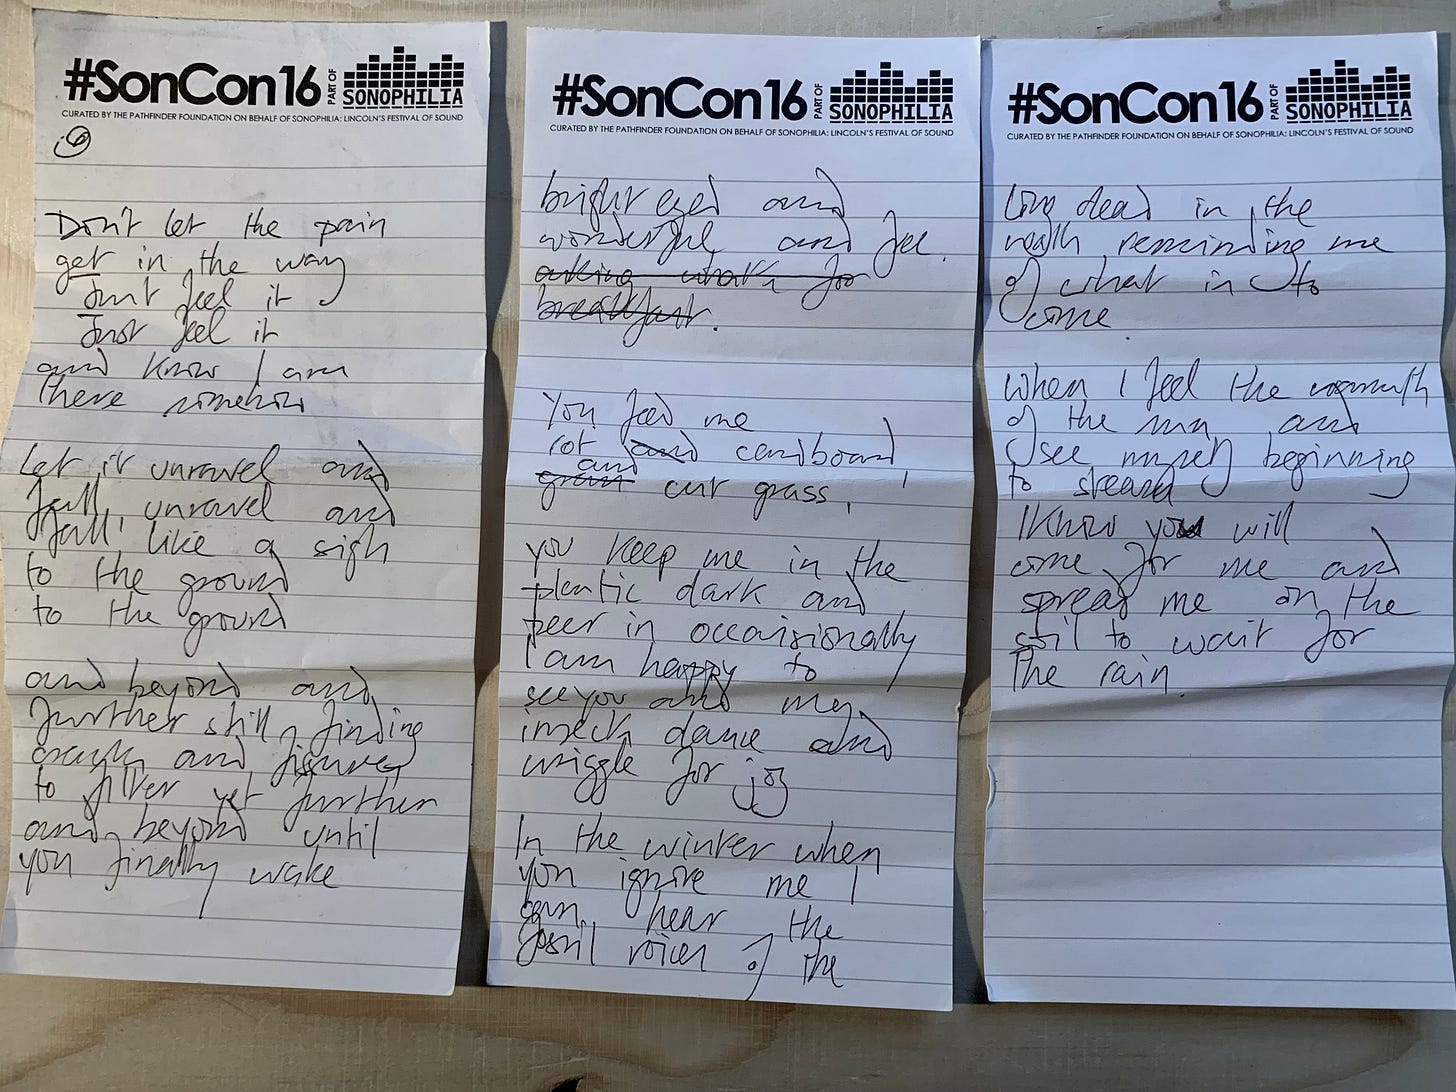 #SonCon16 PART OF SONOPHILIA
CURATED BY THE PATHFINDER FOUNDATION ON BEHALF OF SONOPHILIA: LINCOLN'S FESTIVAL OF SOUND
6
Don't let the pain
get in the way
Just feel it
Just feel it
and know I am
there somehow
Let it unravel and
fall, unravel and
fall, like a sigh
to the ground
to the ground
and beyond and
further still, finding
cracks and fissures
to filter yet further
and beyond until
you finally wake
#SonCon16 PART OF SONOPHILIA
CURATED BY THE PATHFINDER FOUNDATION ON BEHALF OF SONOPHILIA: LINCOLN'S FESTIVAL OF SOUND
bright eyed and
wonderful and free.
asking what's for
breakfast.
You feed me
rot and cardboard,
and
grass cut grass,
you keep me in the
plastic dark and
peer in occaisionally
I am happy to
see you and my
insects dance and
wriggle for joy
In the winter when
you ignore me I
can hear the
fossil voices of the
#SonCon16 PART OF SONOPHILIA
CURATED BY THE PATHFINDER FOUNDATION ON BEHALF OF SONOPHILIA: LINCOLN'S FESTIVAL OF SOUND
long dead in the
reminding me
of what is to
come.
When I feel the warmth
of the sun and
see myself beginning
to steam
I know you will
come for me and
spread me on the
soil to wait for
the rain.